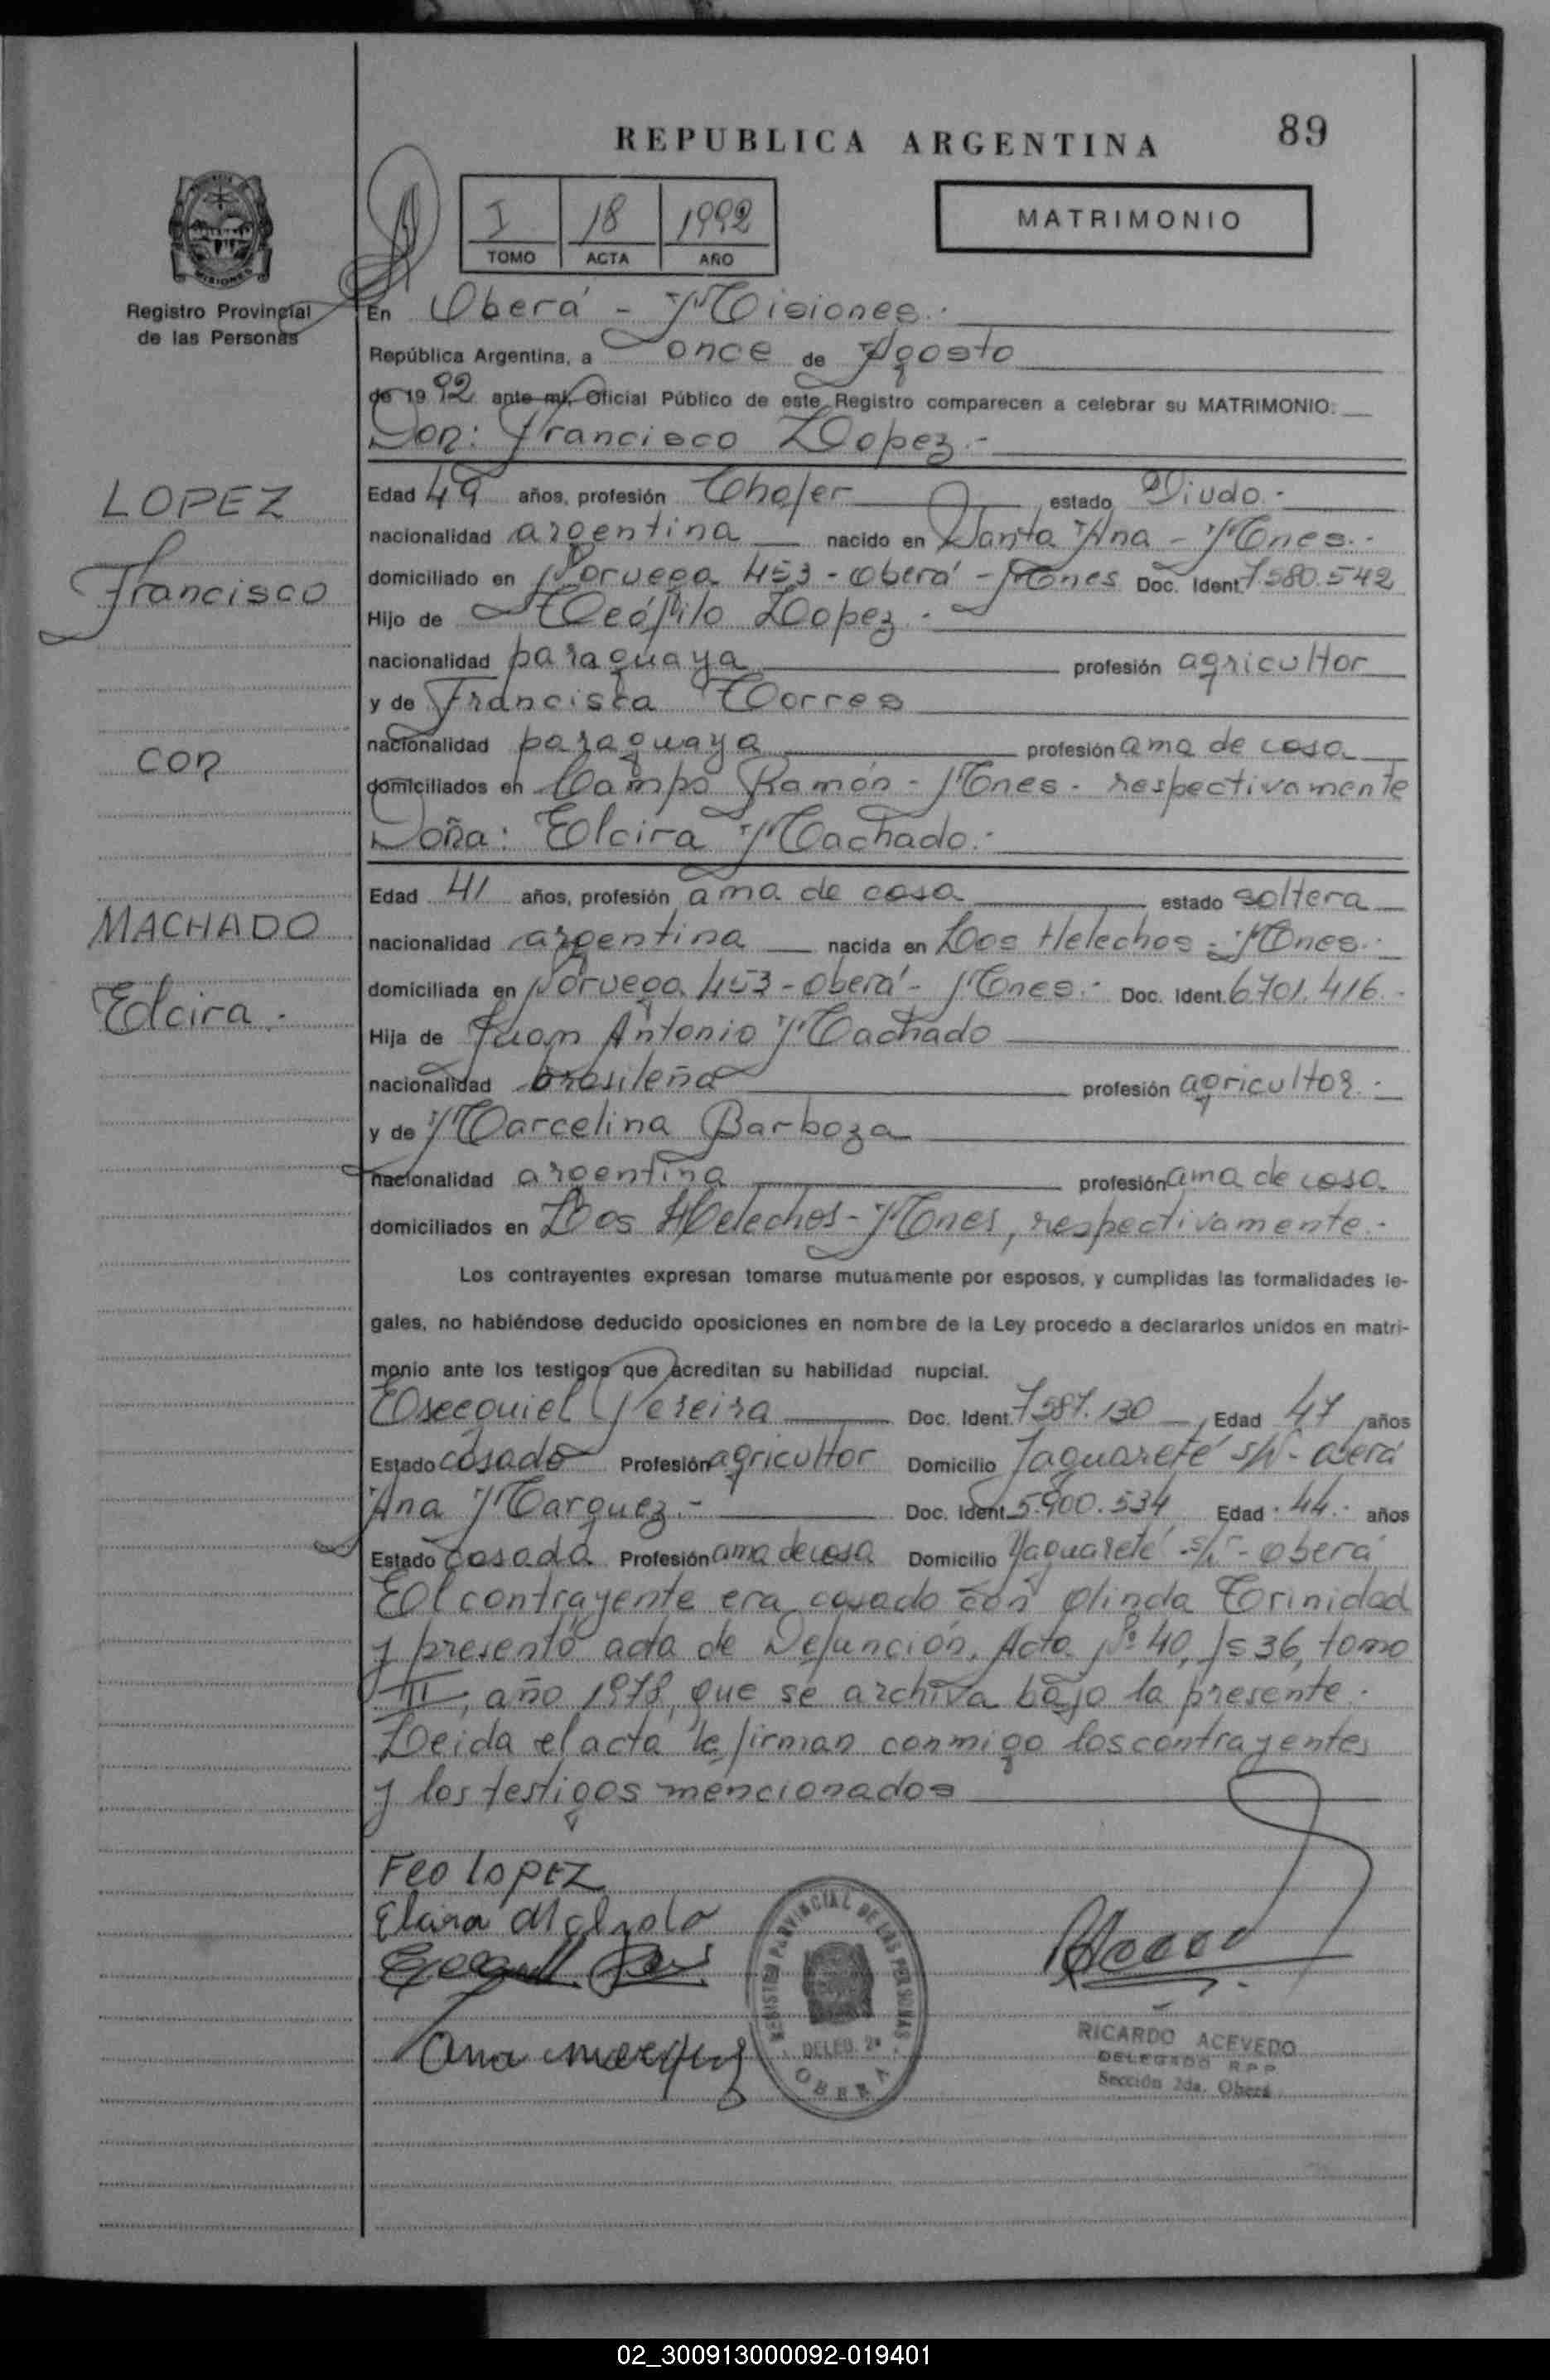 REPUBLICA ARGENTINA
89
I 18 1992
TOMO ACTA AÑO
MATRIMONIO
MISIONES
Registro Provincial
de las Personas
En Oberá - Misiones.-
República Argentina, a once de Agosto
de 1992 ante mí, Oficial Público de este Registro comparecen a celebrar su MATRIMONIO:
Don: Francisco Lopez.-
LOPEZ
Francisco
con
MACHADO
Elcira.-
Edad 49 años, profesión Chofer estado Viudo.-
nacionalidad argentina nacido en Santa Ana - Mnes.-
domiciliado en Noruega 453 - Oberá - Mnes Doc. Ident. 7.580.542
Hijo de Teófilo Lopez.-
nacionalidad paraguaya profesión agricultor
y de Francisca Torres
nacionalidad paraguaya profesión ama de casa
domiciliados en Campo Ramón - Mnes - respectivamente
Doña: Elcira Machado.-
Edad 41 años, profesión ama de casa estado soltera
nacionalidad argentina nacida en Los Helechos - Mnes.-
domiciliada en Noruega 453 - Oberá - Mnes.- Doc. Ident. 6.701.416.-
Hija de Juan Antonio Machado
nacionalidad brasileña profesión agricultor.-
y de Marcelina Barboza
nacionalidad argentina profesión ama de casa
domiciliados en Los Helechos - Mnes, respectivamente.-
Los contrayentes expresan tomarse mutuamente por esposos, y cumplidas las formalidades le-
gales, no habiéndose deducido oposiciones en nombre de la Ley procedo a declararlos unidos en matri-
monio ante los testigos que acreditan su habilidad nupcial.
Esequiel Pereira Doc. Ident. 7.587.130 Edad 47 años
Estado casado Profesión agricultor Domicilio Yaguareté s/N - Oberá
Ana Marquez.- Doc. Ident. 5.900.534 Edad 44.- años
Estado casada Profesión ama de casa Domicilio Yaguareté s/N - Oberá
El contrayente era casado con Olinda Trinidad
y presentó acta de Defunción, Acta Nº 40, fs 36, tomo
III, año 1978, que se archiva bajo la presente.-
Leida el acta la firman conmigo los contrayentes
y los testigos mencionados
Fco lopez
Elcira Machado
Ana Marquez
REGISTRO PROVINCIAL DE LAS PERSONAS
DELEG. 2ª
OBERA
RICARDO ACEVEDO
DELEGADO R.P.P.
Sección 2da. Oberá
02_300913000092-019401